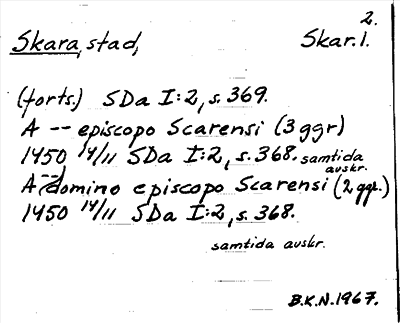 2.
Skara, stad, Skar. 1.
(forts.) SDa I:2, s. 369.
A -- episcopo Scarensi (3 ggr)
1450 14/11 SDa I:2, s. 368. samtida avskr.
A -- domino episcopo Scarensi (2 ggr.)
1450 14/11 SDa I:2, s. 368.
samtida avskr.
B.K.N. 1967.